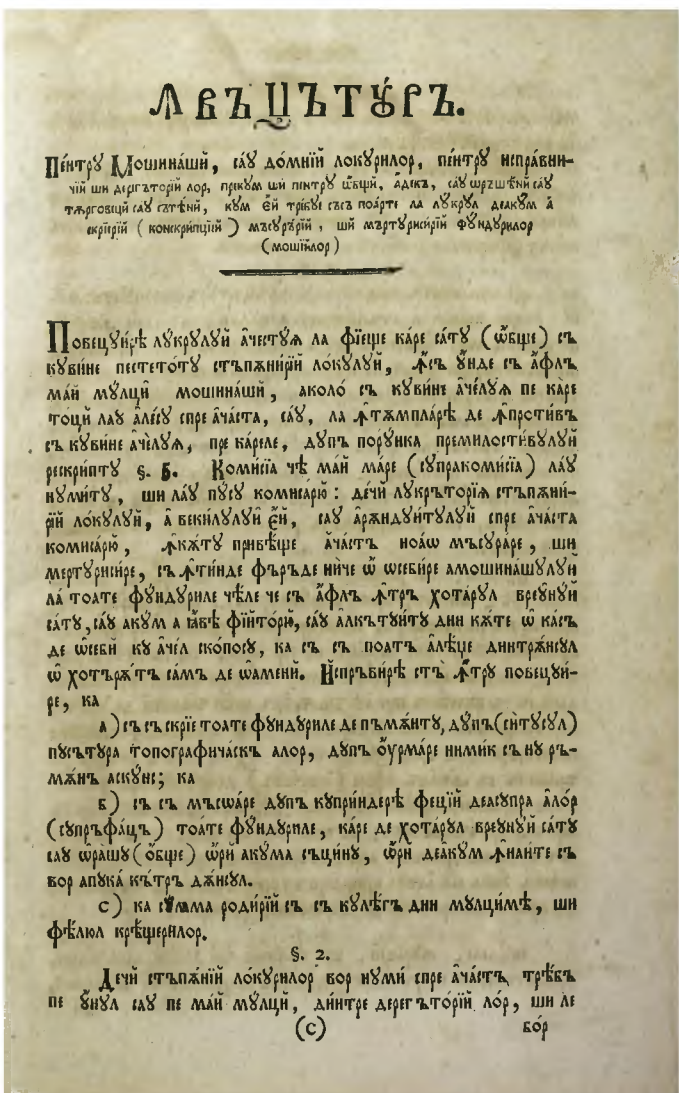 ꙞВЪЦЪТꙊРЪ.
Пе́нтрꙋ Мошина́шй, са́ꙋ до́мнїй локꙋрилор, пе́нтрꙋ исправни-
чїй ши дерегъторїй лор, прекꙋм ши пентрꙋ ѡ҆бщй, а҆декъ, саꙋ ѡръше́нй саꙋ
тѫрговецй саꙋ съте́нй, кꙋм є҆й требꙋе съсъ поа́рте ла лꙋкрꙋл деакꙋ́м а҆
скрїерїй ( конскрипцїей ) мъсꙋрърїй , шй мъртꙋрисирїй фꙋндꙋрилор
(мошїилор)
Повецꙋи́рѣ лꙋ́крꙋлꙋй ачестꙋѧ ла фїеще ка́ре са́тꙋ (ѡ҆бще) съ
кꙋви́не пестето́тꙋ стъпѫни́рїй ло́кꙋлꙋй, ꙟ҆съ ꙋ҆нде съ а҆флъ
ма́й мꙋ́лцй мошина́шй, аколо́ съ кꙋви́не аче́лꙋѧ пе каре
то́цй лаꙋ але́сꙋ спре ача́ста, са́ꙋ, ла ꙟ҆тѫмпла́рѣ де ꙟ҆проти́въ
съ кꙋвине аче́лꙋѧ, пре ка́реле, дꙋпъ пору́нка премилости́вꙋлꙋй
рескри́птꙋ §. 5. Коми́сїа чѣ ма́й ма́ре (сꙋпракоми́сїа) ла́ꙋ
нꙋми́тꙋ, ши ла́ꙋ пꙋ́сꙋ комиса́рю : де́чй лꙋкръторїѧ стъпѫни-
рїй ло́кꙋлꙋй, а҆ веки́лꙋлꙋй є҆й, саꙋ арѫндꙋи́тꙋлꙋй спре ача́ста
комиса́рю, ꙟ҆кѫ́тꙋ привѣ́ще ача́стъ ноа́ѡ мъсꙋра́ре, ши
мертꙋриси́ре, съ ꙟ҆ти́нде фъръде ни́че ѡ҆ ѡсеби́ре амошина́шꙋлꙋй
ла́ тоате фꙋ́ндꙋриле чѣ́ле че съ а҆флъ ꙟ҆тръ хота́рꙋл вреꙋ́нꙋй
са́тꙋ, са́ꙋ акꙋ́м а ꙗ҆вѣ фїито́рю, са́ꙋ алкътꙋи́тꙋ дин кѫ́те ѡ҆ ка́съ
де ѡсе́би кꙋ аче́л ско́посꙋ, ка съ съ поа́тъ алѣ́це динтрѫ́нсꙋл
ѡ҆ хотърѫ́тъ са́мъ де ѡ҆аме́ни. И҆спръви́рѣ стъ ꙟ҆тру повецꙋи́-
ре, ка
а ) съ съ скрїе тоате фꙋ́ндꙋриле де пъмѫ́нтꙋ, дꙋ́пъ (си́тꙋсꙋл)
пꙋсътꙋра топографича́скъ алор, дꙋпъ ѹ҆рма́ре нимик съ нꙋ ръ-
мѫ́нъ аскꙋ́нс; ка
б ) съ съ мъсѡ́аре дꙋпъ кꙋпри́ндерѣ фе́цїй деасꙋ́пра ало́р
(сꙋпръфа́цъ) тоате фꙋ́ндꙋриле, ка́ре де хота́рꙋл вреꙋ́нꙋй са́тꙋ
саꙋ ѡра́шꙋ (о҆бще) ѡ҆рй акꙋма съцинꙋ, ѡ҆ри деакꙋм ꙟ҆наи́нте съ
вор апꙋка́ кътръ дѫ́нсꙋл.
с ) ка сꙋма родирїй съ съ кꙋлѣ́гъ дин мꙋлци́мѣ, ши
фѣ́люл крѣ́щерилор.
§. 2.
Дечй стъпѫ́нїй ло́кꙋрилор вор нꙋми́ спре ача́стъ трѣ́бъ
пе ꙋ҆нꙋл саꙋ пе ма́й мꙋ́лцй, ди́нтре дерегъто́рїй ло́р, ши ле
(с) во́р